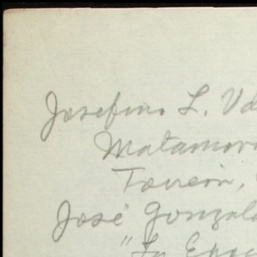 Josefino L. Vd
Matamor
Torreón,
José Gonzal
"La Epoc